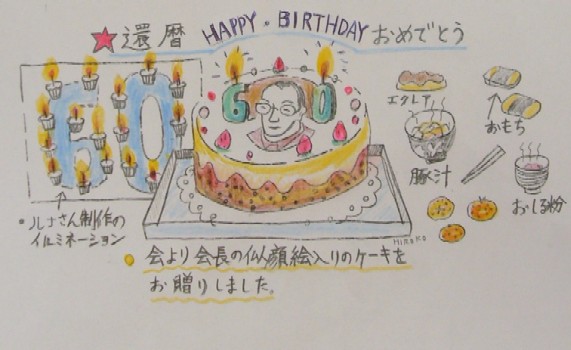 ★還暦 HAPPY・BIRTHDAY おめでとう
60
60
エクレア
おもち
豚汁
おしる粉
・ルナさん制作の
イルミネーション
HIROKO
会より会長の似顔絵入りのケーキを
お贈りしました。